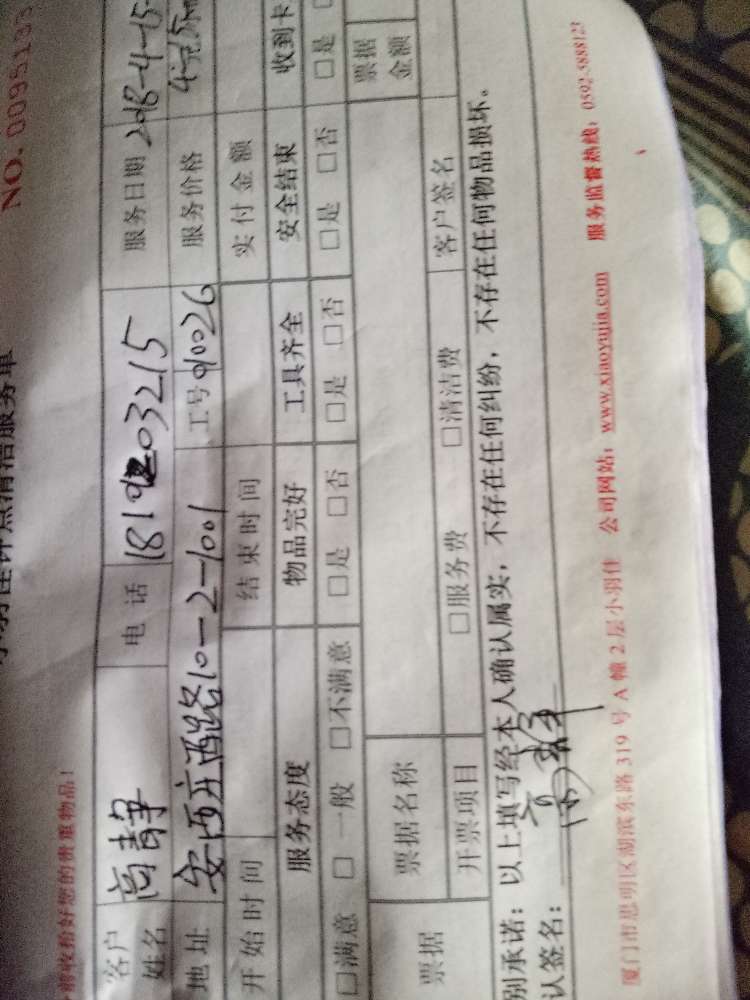 NO. 0095133
小羽佳钟点清洁服务单
请收拾好您的贵重物品!
客户姓名 高静 电话 1819203215 服务日期 2018-4-15
地址 安西庄西路10-2-1001 工号 90026 服务价格
开始时间 结束时间 实付金额
服务态度 物品完好 工具齐全 安全结束 收到卡
□满意 □一般 □不满意 □是 □否 □是 □否 □是 □否 □是
票据 票据名称 票据金额
开票项目 □服务费 □清洁费 客户签名
别承诺:以上填写经本人确认属实,不存在任何纠纷,不存在任何物品损坏。
认签名:
厦门市思明区湖滨东路 319 号 A 幢 2 层小羽佳 公司网站:www.xiaoyujia.com 服务监督热线:0592-5888123